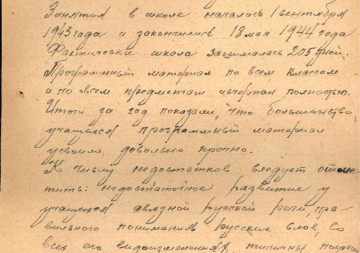 Занятия в школе начались 1 сентября
1943 года и закончились 18 мая 1944 года
Фактически школа занималась 205 дней.
Программный материал по всем классам
и по всем предметам исчерпан полностью.
Итоги за год показали, что большинство
учащихся программный материал
усвоили довольно прочно.
К числу недостатков следует отнес-
тить: недостаточное развитие у
учащихся связной русской речи, пра-
вильного понимания русских слов, во
всех его видоизменениях, типичны